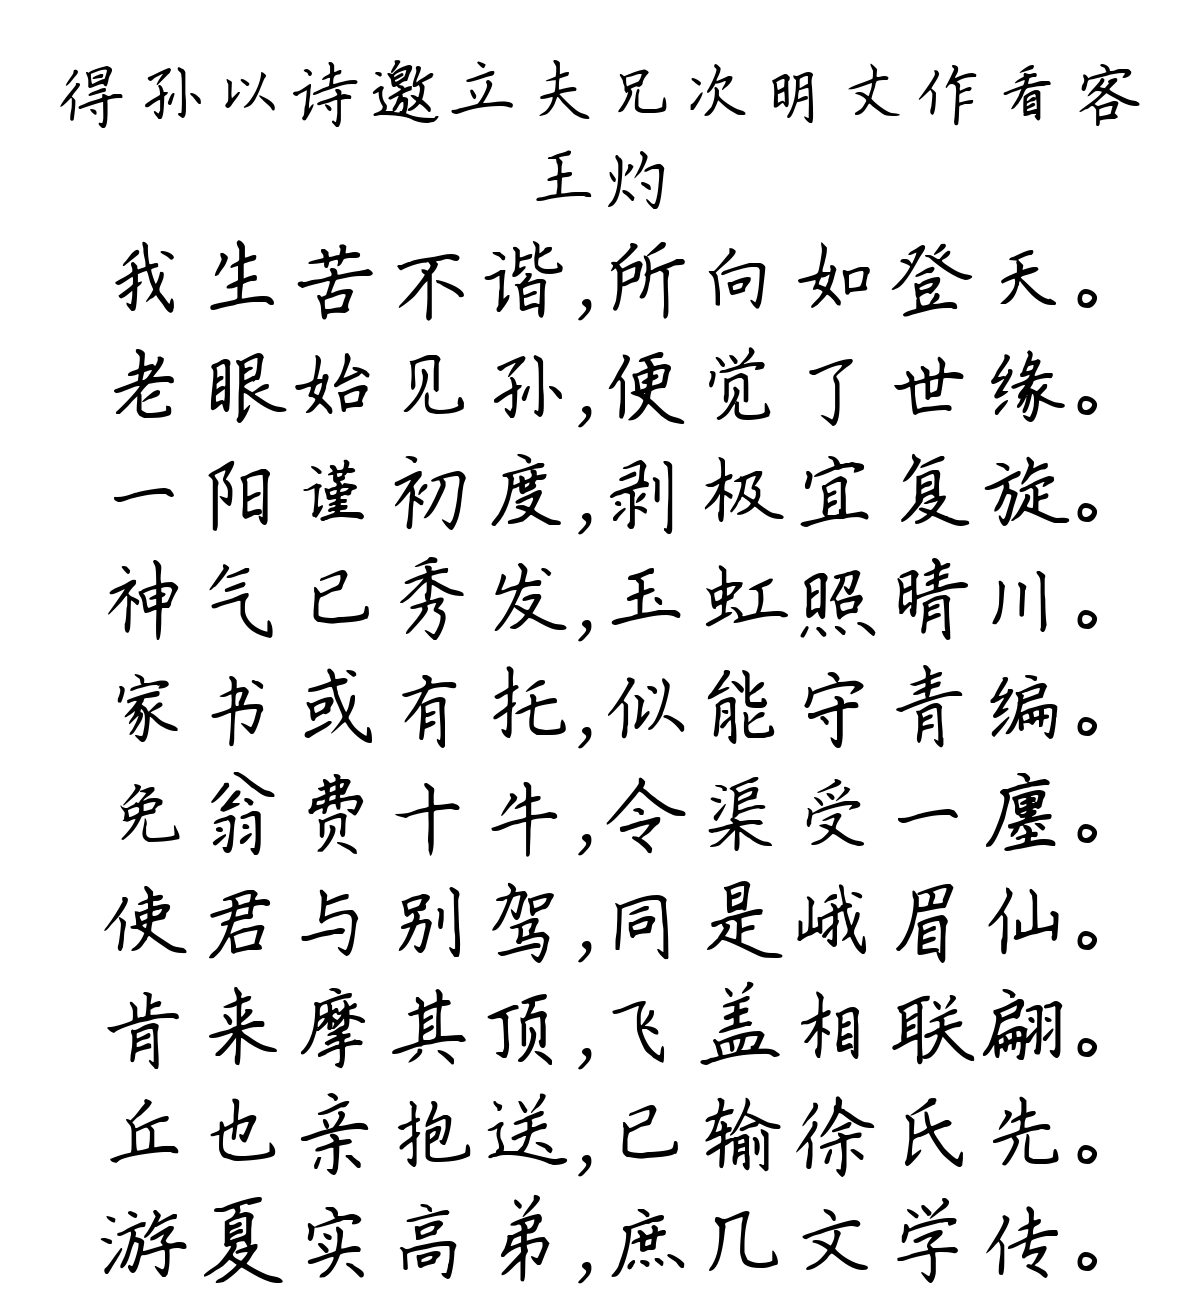 得孙以诗邀立夫兄次明丈作看客
王灼
我生苦不谐,所向如登天。
老眼始见孙,便觉了世缘。
一阳谨初度,剥极宜复旋。
神气已秀发,玉虹照晴川。
家书或有托,似能守青编。
免翁费十牛,令渠受一廛。
使君与别驾,同是峨眉仙。
肯来摩其顶,飞盖相联翩。
丘也亲抱送,已输徐氏先。
游夏实高弟,庶几文学传。